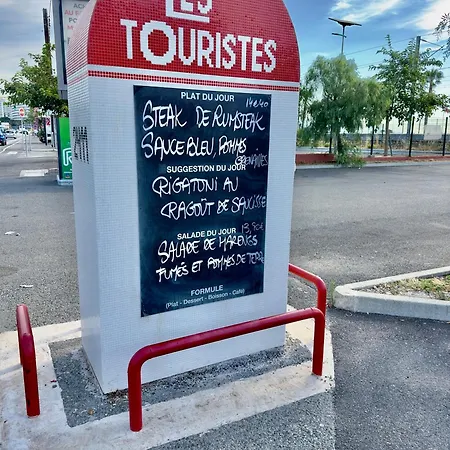 LES
TOURISTES
PLAT DU JOUR
14€40
STEAK DE RUMSTEAK
SAUCE BLEU, POMMES
GRENAILLES
SUGGESTION DU JOUR
RIGATONI AU
RAGOÛT DE SAUCISSE
SALADE DU JOUR
13,90€
SALADE DE HARENGS
FUMÉS ET POMMES DE TERRE
FORMULE
(Plat - Dessert - Boisson - Café)